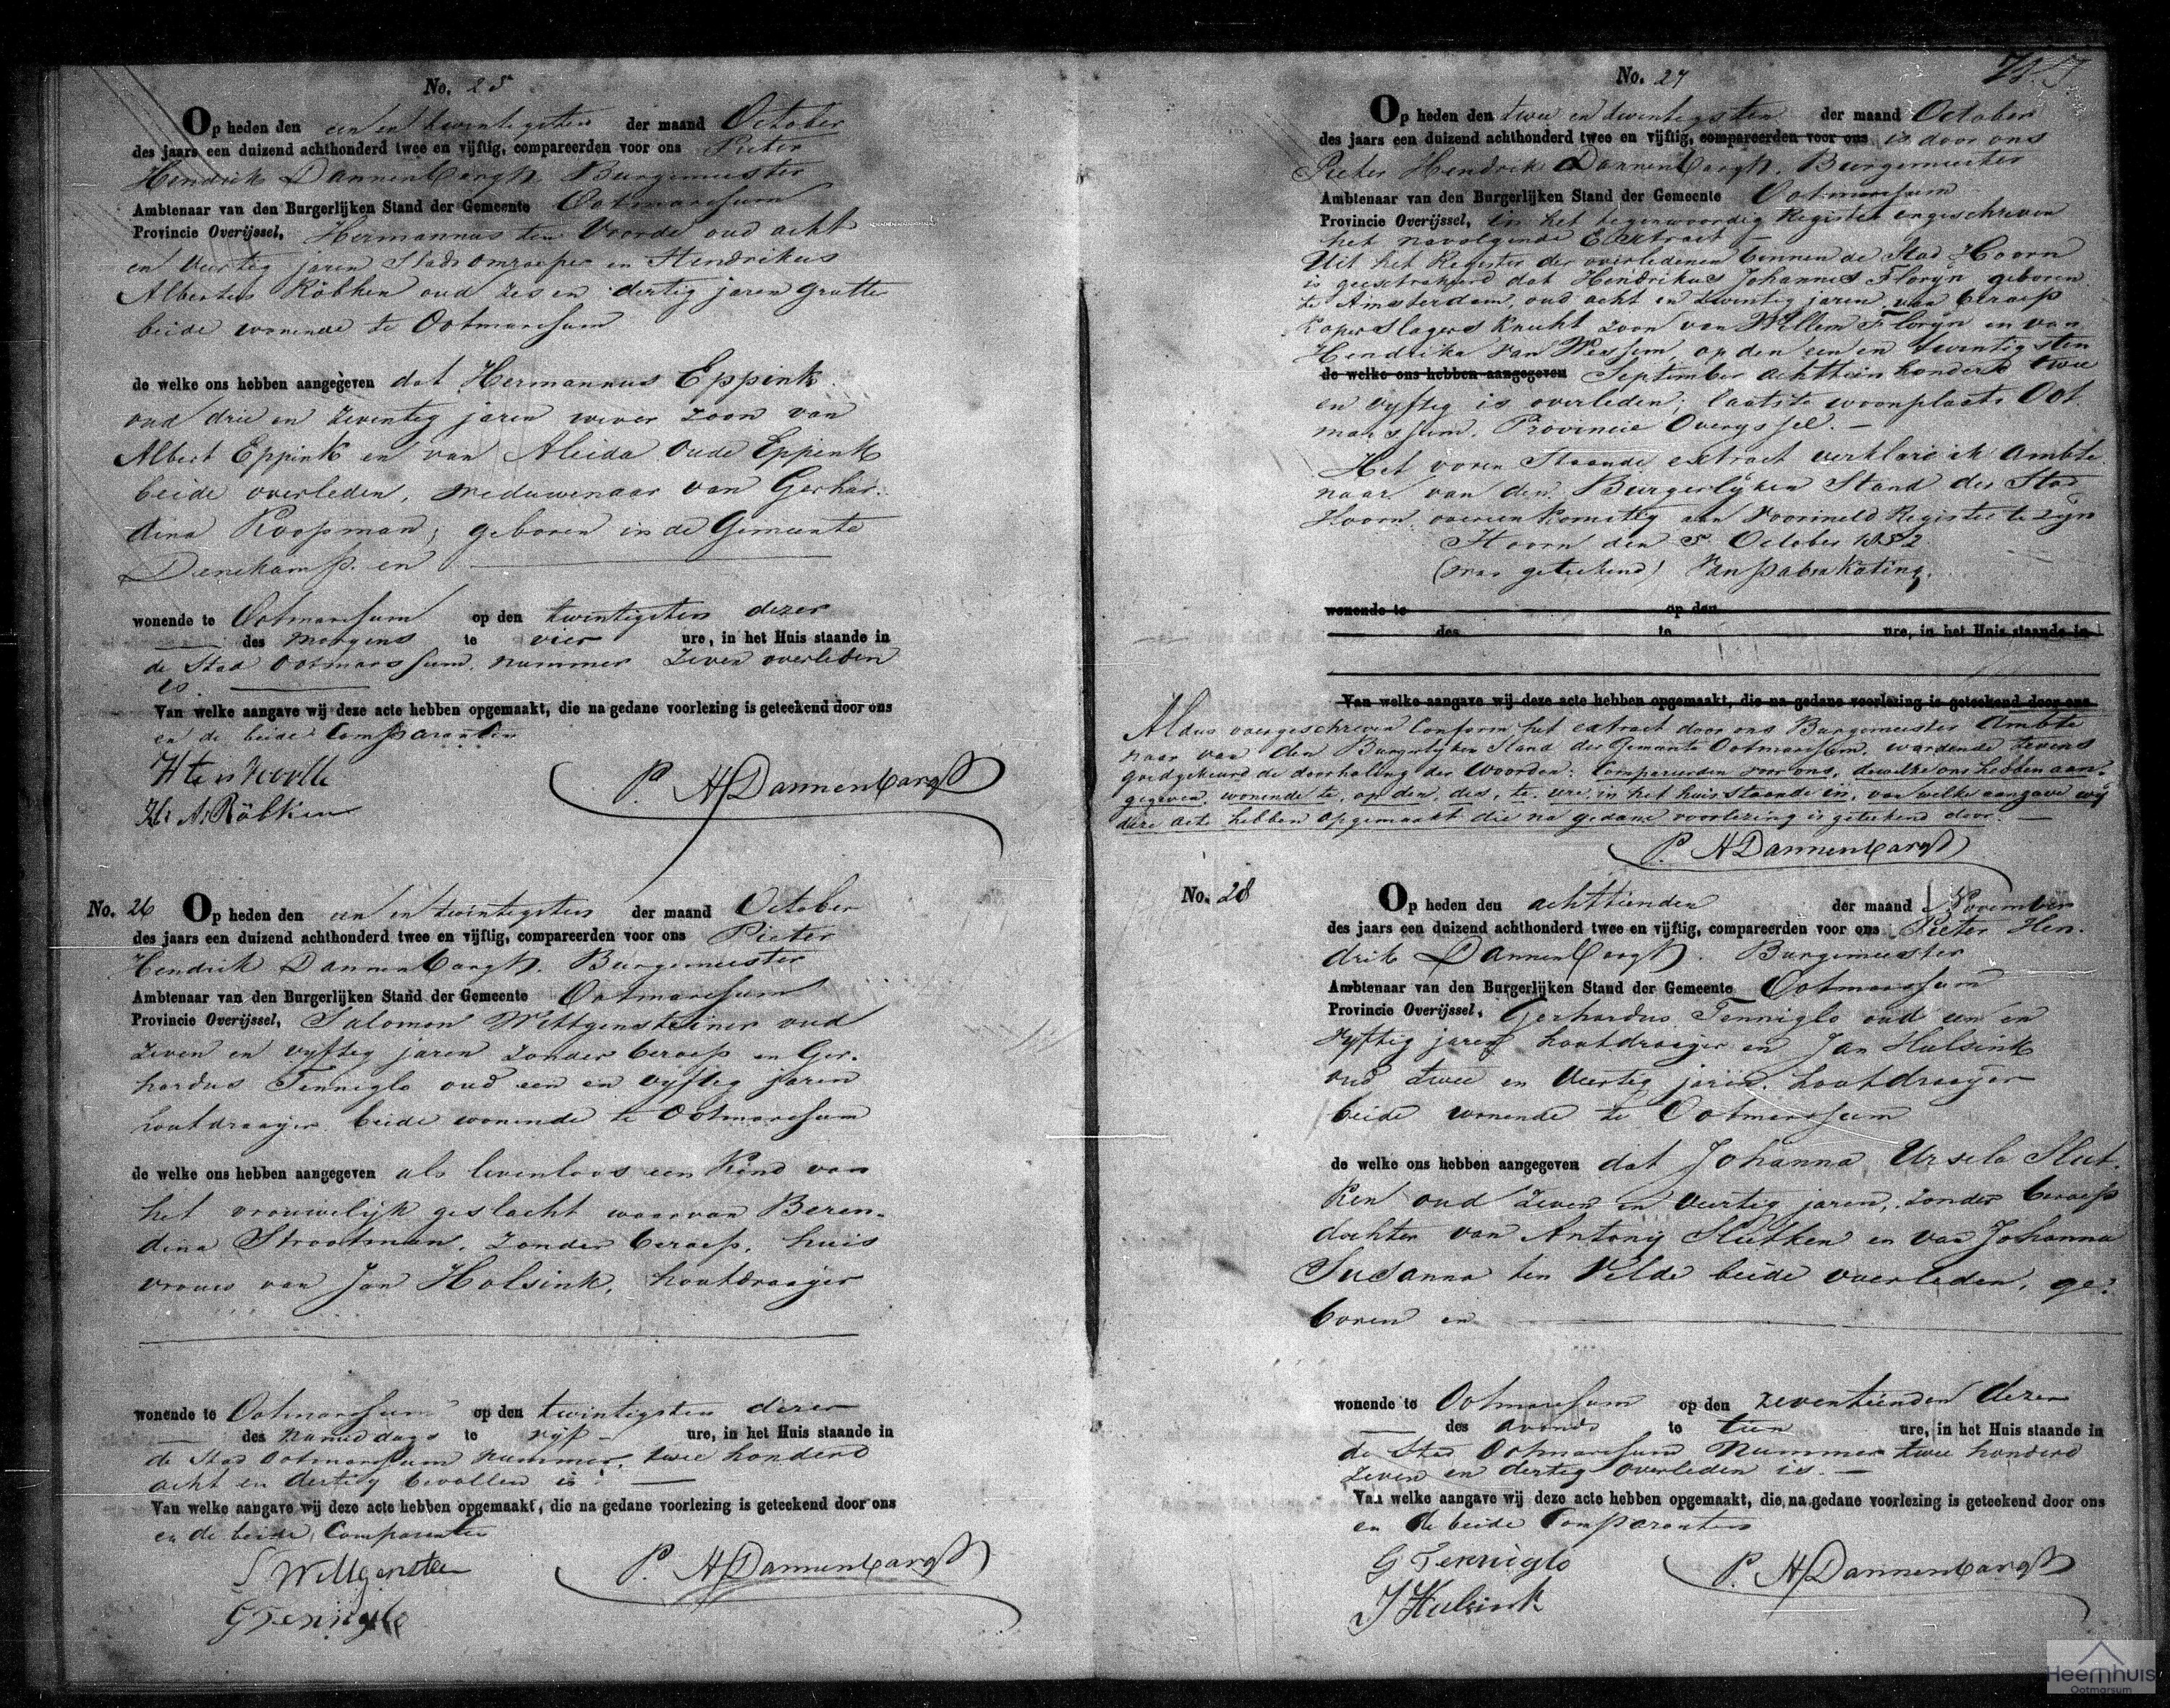 No. 25
Op heden den een en twintigsten der maand October
des jaars een duizend achthonderd twee en vijftig, compareerden voor ons Pieter
Hendrik Dannenbargh. Burgemeester
Ambtenaar van den Burgerlijken Stand der Gemeente Ootmarssum
Provincie Overijssel, Hermannus ten Voorde oud acht
en veertig jaren Stads omroeper en Hendrikus
Albertus Röbken oud zes en dertig jaren
beide wonende te Ootmarssum
de welke ons hebben aangegeven dat Hermannus Eppink
oud drie en zeventig jaren wever zoon van
Albert Eppink en van Aleida Oude Eppink
beide overleden, weduwenaar van Gerhar-
dina Koopman, geboren in de Gemeente
Denekamp. en
wonende te Ootmarssum op den twintigsten dezer
des morgens te vier ure, in het Huis staande in
de Stad Ootmarssum, nummer zeven overleden
is.
Van welke aangave wij deze acte hebben opgemaakt, die na gedane voorlezing is geteekend door ons
en de beide Comparanten
H. A. Röbken
P. H Dannenbargh
No. 26 Op heden den een en twintigsten der maand October
des jaars een duizend achthonderd twee en vijftig, compareerden voor ons Pieter
Hendrik Dannenbargh. Burgemeester
Ambtenaar van den Burgerlijken Stand der Gemeente Ootmarssum
Provincie Overijssel, Salomon Wittgensteiner oud
zeven en vyftig jaren zonder beroep en Ger-
hardus Tenniglo oud een en vyftig jaren
houtdraager beide wonende te Ootmarssum
de welke ons hebben aangegeven als levenloos een Kind van
het vrouwelijk geslacht waarvan Beren-
dina Strootman, zonder beroep, huis
vrouw van Jan Holsink, houtdraager
wonende te Ootmarssum op den twintigsten dezer
des namiddags te vyf ure, in het Huis staande in
de Stad Ootmarssum nummer, twee honderd
acht en dertig bevallen is.
Van welke aangave wij deze acte hebben opgemaakt, die na gedane voorlezing is geteekend door ons
en de beide Comparanten
S Wittgenstein
G Tenniglo
P. H Dannenbargh
No. 27
Op heden den twee en twintigsten der maand October
des jaars een duizend achthonderd twee en vijftig, compareerden voor ons is door ons
Pieter Hendrik Dannenbargh. Burgemeester
Ambtenaar van den Burgerlijken Stand der Gemeente Ootmarssum
Provincie Overijssel, in het tegenwoordig Register ingeschreven
het navolgende Extract
Uit het Register der overledenen binnen de Stad Hoorn
is geextraheerd dat Hendrikus Johannes Floryn geboren
te Amsterdam, oud acht en twintig jaren van beroep
Koperslagers Knecht zoon van Willem Floryn en van
Hendrika van Wessem, op den een en twintigsten
de welke ons hebben aangegeven September achttien honderd twee
en vyftig is overleden; laatste woonplaats Oot
marssum. Provincie Overyssel. —
Het voren Staande extract verklare ik Ambte
naar van den Burgerlyken Stand der Stad
Hoorn, overeenkomstig aan voormeld Register te zyn
Hoorn den 5 October 1852
(was geteekend)
wonende te op den
des te ure, in het Huis staande in
Van welke aangave wij deze acte hebben opgemaakt, die na gedane voorlezing is geteekend door ons
Aldus overgeschreven Conform het extract door ons Burgemeester Ambte
naar van den Burgerlyken Stand der Gemeente Ootmarssum, wordende tevens
goedgekeurd de doorhaling der Woorden: Compareerden voor ons, de welke ons hebben aan-
gegeven, wonende te, op den, des, te, ure, in het huis staande in, van welke aangave wij
deze acte hebben opgemaakt die na gedane voorlezing is geteekend door. —
P. H Dannenbargh
No. 28 Op heden den achttienden der maand November
des jaars een duizend achthonderd twee en vijftig, compareerden voor ons Pieter Hen-
drik Dannenbargh. Burgemeester
Ambtenaar van den Burgerlijken Stand der Gemeente Ootmarssum
Provincie Overijssel, Gerhardus Tenniglo oud een en
vyftig jaren houtdraager en Jan Hulsink
oud twee en veertig jaren. houtdraager
beide wonende te Ootmarssum
de welke ons hebben aangegeven dat Johanna Ursela Slut-
ken oud zeven en veertig jaren, zonder beroep
dochter van Antony Slutken en van Johanna
Susanna ten Velde beide overleden, ge-
boren en
wonende te Ootmarssum op den zeventienden dezer
des avonds te tien ure, in het Huis staande in
de Stad Ootmarssum Nummer twee honderd
zeven en dertig overleden is. —
Van welke aangave wij deze acte hebben opgemaakt, die na gedane voorlezing is geteekend door ons
en de beide Comparanten
G Tenniglo
J Hulsink
P. H Dannenbargh
Heemhuis
Ootmarsum